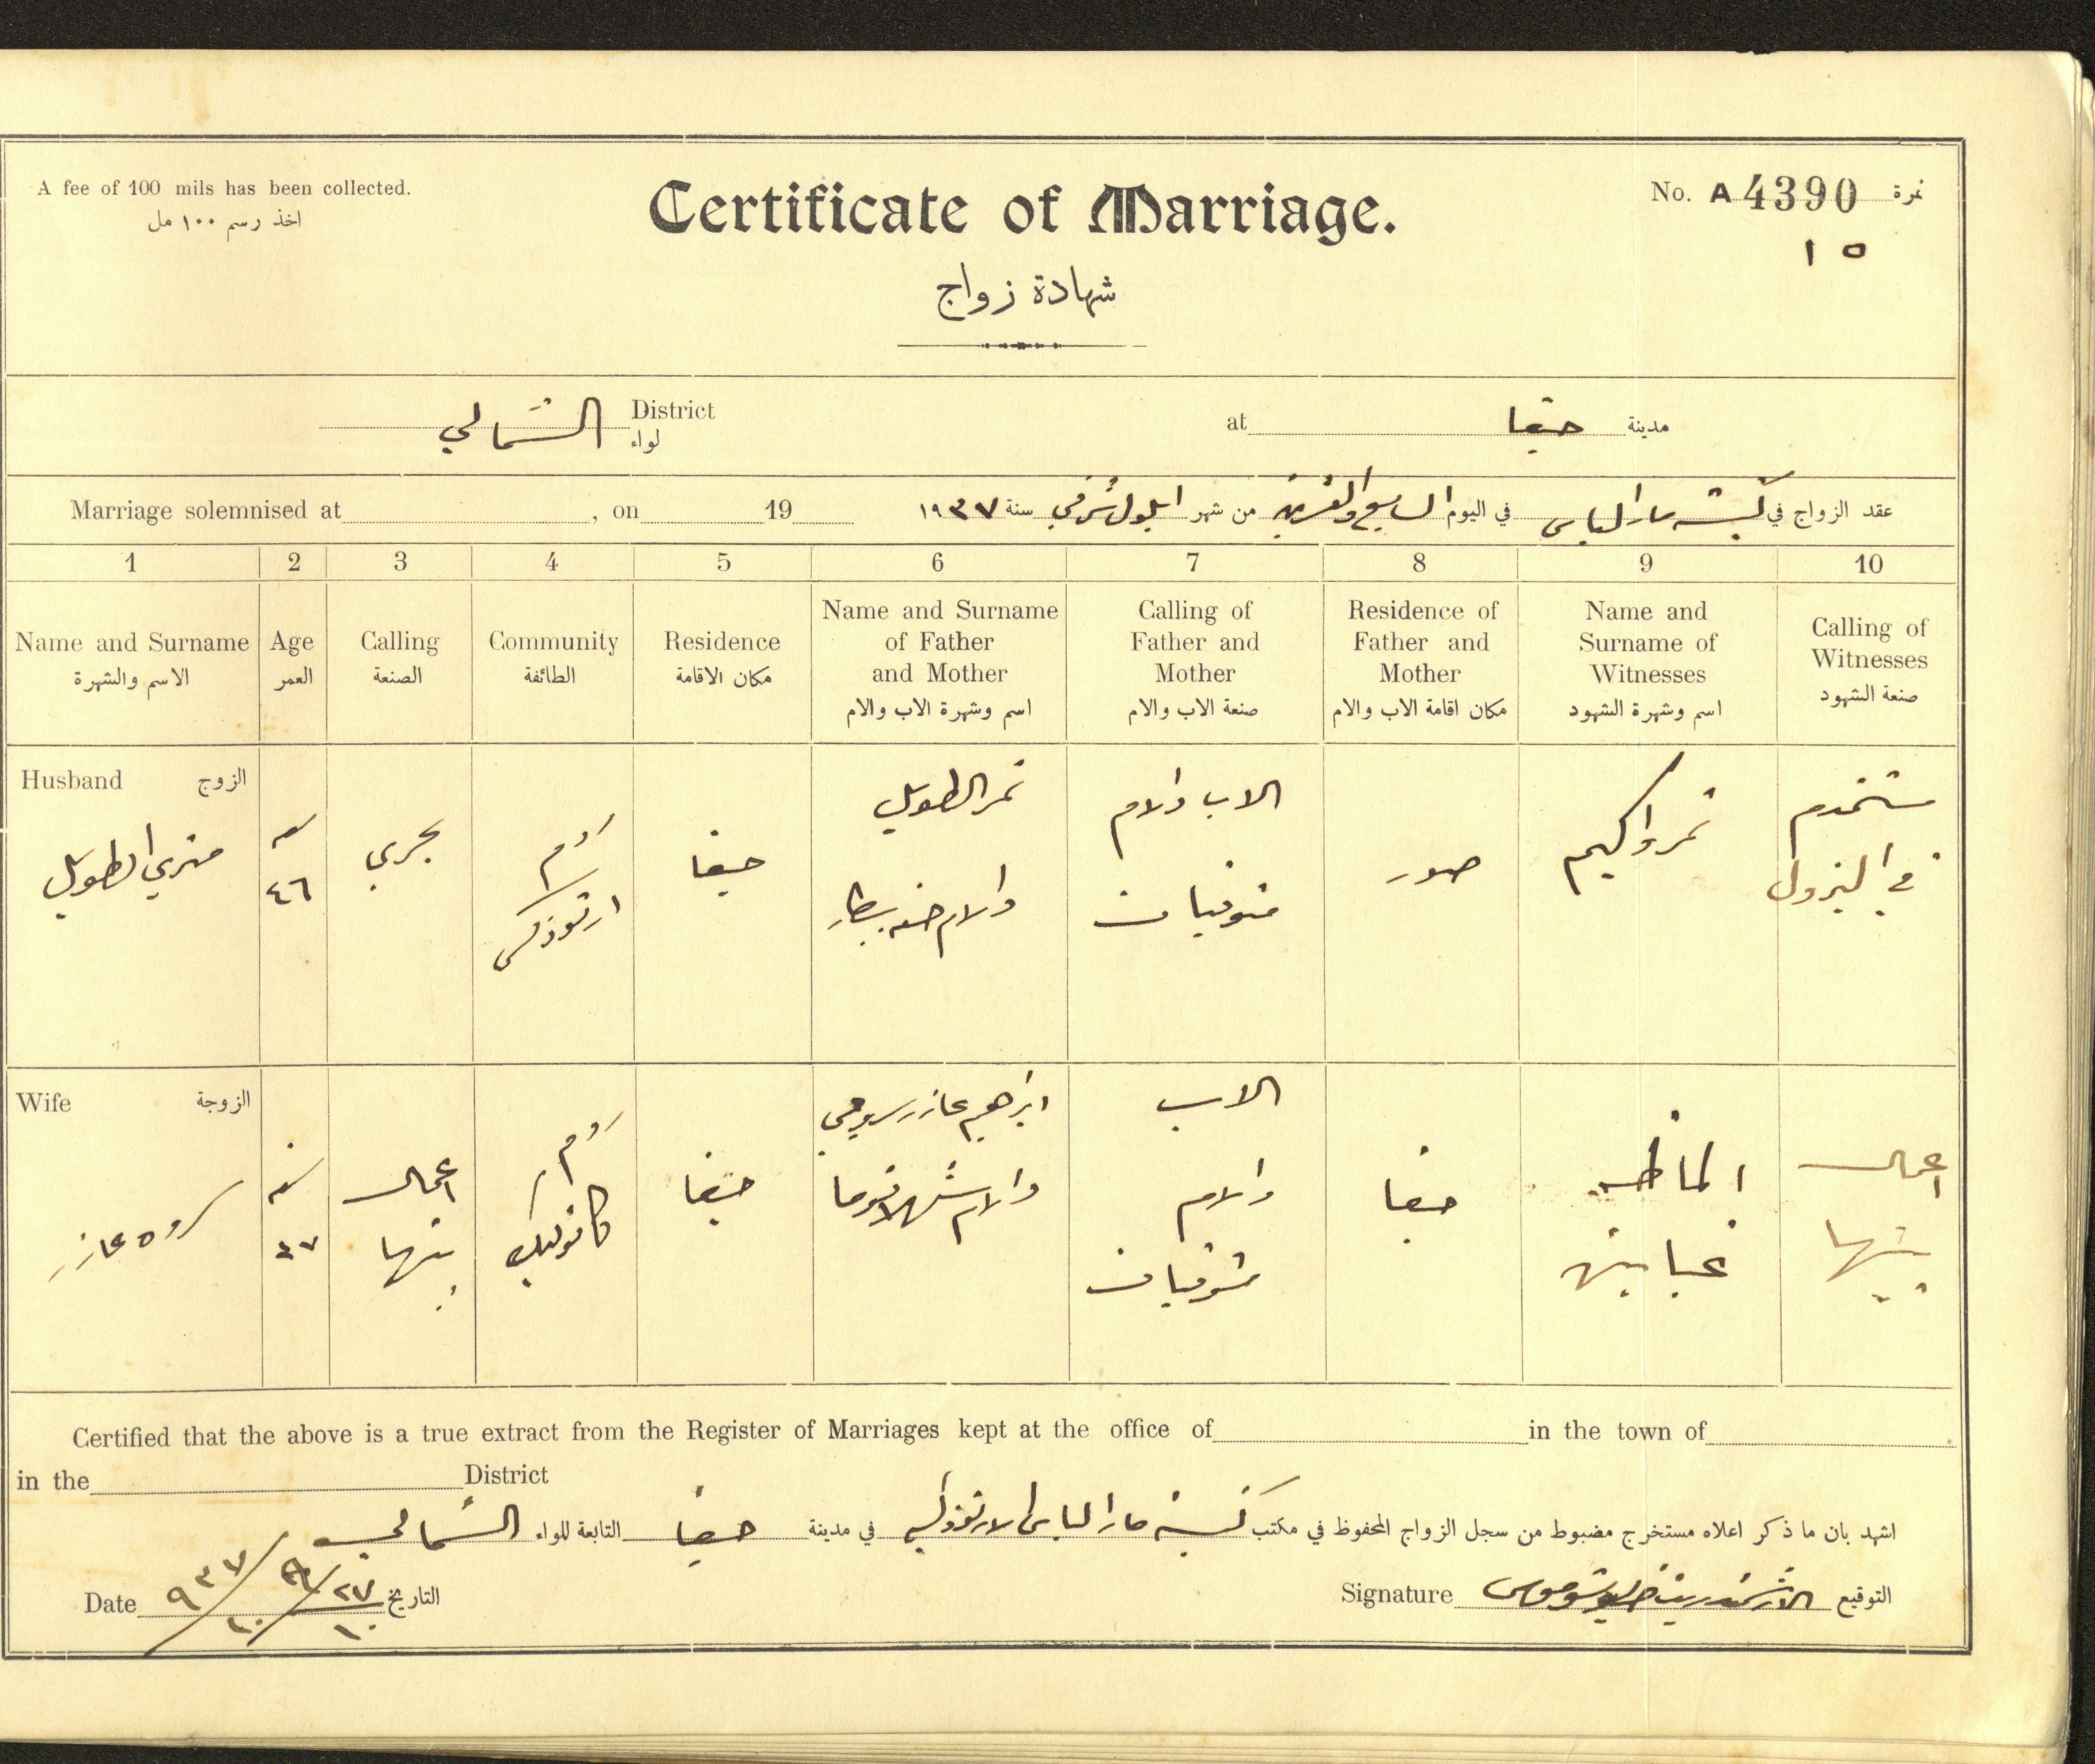 A fee of 100 mils has been collected.
اخذ رسم ١٠٠ مل
Certificate of Marriage.
شهادة زواج
No. A 4390 نمرة
١٥
District الشمالي لواء
at حيفا مدينة
Marriage solemnised at , on 19
عقد الزواج في كنيسة مار الياس في اليوم السابع والعشرين من شهر ايلول شرقي سنة ١٩٣٧
1 2 3 4 5 6 7 8 9 10
Name and Surname
الاسم والشهرة
Age
العمر
Calling
الصنعة
Community
الطائفة
Residence
مكان الاقامة
Name and Surname
of Father
and Mother
اسم وشهرة الاب والام
Calling of
Father and
Mother
صنعة الاب والام
Residence of
Father and
Mother
مكان اقامة الاب والام
Name and
Surname of
Witnesses
اسم وشهرة الشهود
Calling of
Witnesses
صنعة الشهود
Husband الزوج
متري الطويل
سنة
٤٦
بحري
روم
ارثوذكس
حيفا
نمر الطويل
والام حنه بيطار
الاب والام
متوفيان
صور
نمر واكيم
مستخدم
في البترول
Wife الزوجة
عازر
سنة
٣٧
اعمال
بيتها
روم
كاثوليك
حيفا
ابرهيم عازر
والام
الاب
والام
متوفيان
حيفا
اعمال
بيتها
Certified that the above is a true extract from the Register of Marriages kept at the office of in the town of
in the District
اشهد بان ما ذكر اعلاه مستخرج مضبوط من سجل الزواج المحفوظ في مكتب كنيسة مار الياس الارثوذكسية في مدينة حيفا التابعة للواء الشمالي
Date ٩٣٧ / ٢٧ / ١٠ التاريخ
Signature الارشمندريت التوقيع